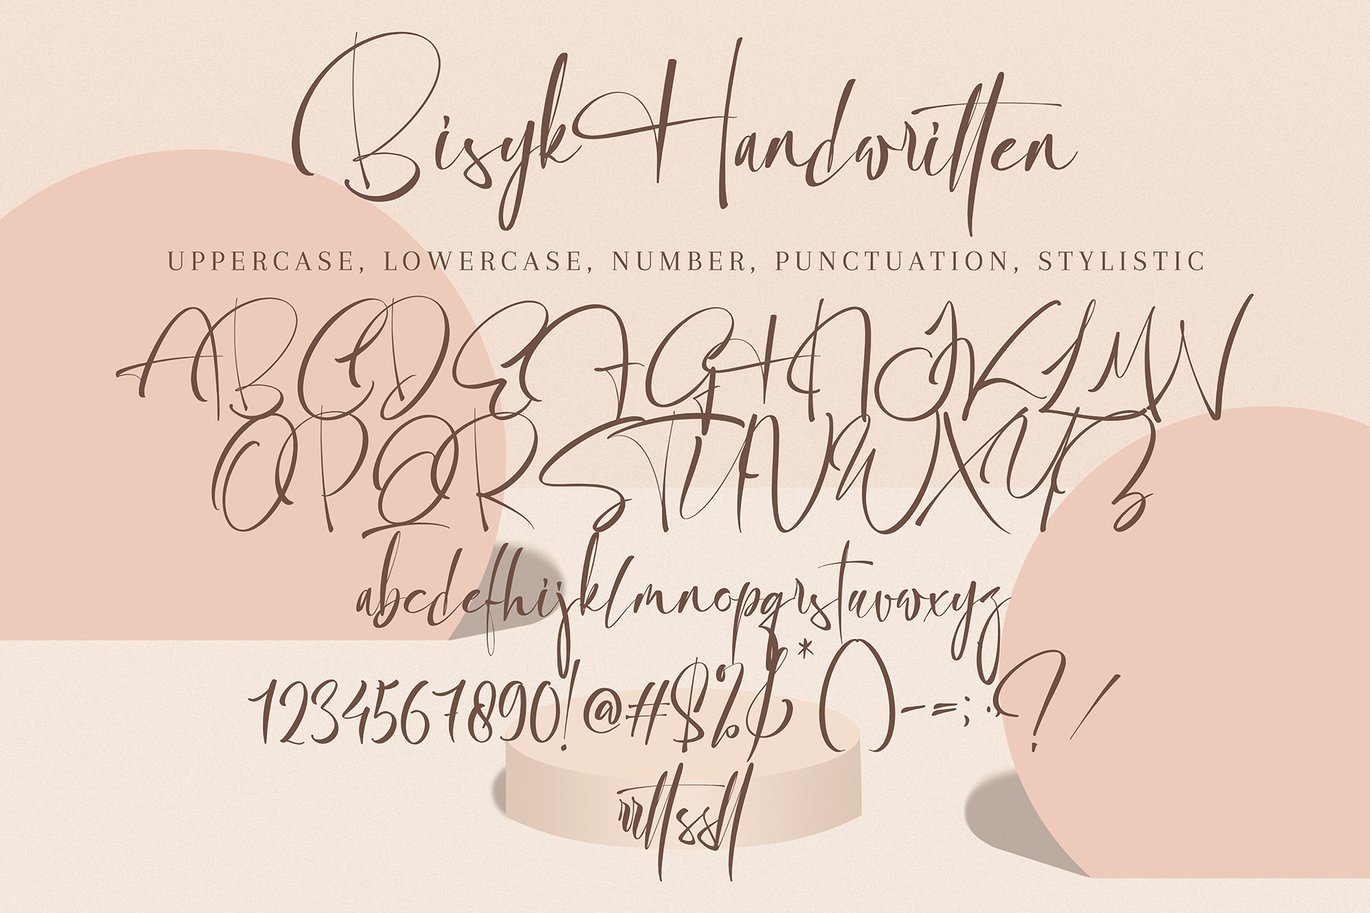 Bisyk Handwritten
UPPERCASE, LOWERCASE, NUMBER, PUNCTUATION, STYLISTIC
ABCDEFGHIJKLMN
OPQRSTUVWXYZ
abcdefhijklmnopqrstuvwxyz
1234567890!@#$%&*()-=;:?/
rrttssll